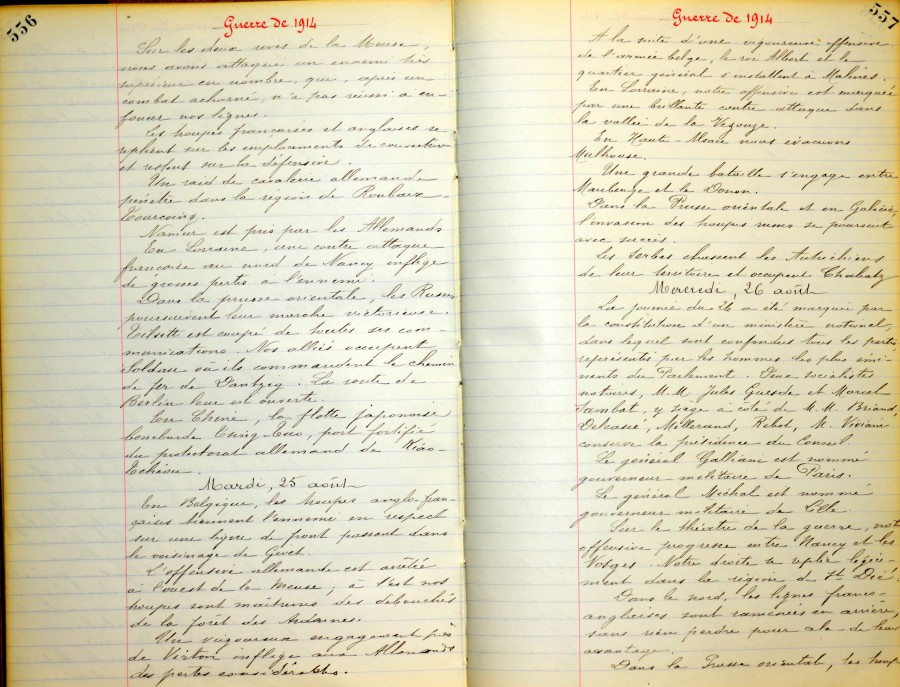 556
Guerre de 1914
Sur les deux rives de la Meuse,
nous avons attaqué un ennemi très
supérieur en nombre, que, après un
combat acharné, n'a pas réussi a en-
foncer nos lignes.
Les troupes françaises et anglaises se
replient sur les emplacements de couverture
et restent sur la défensive.
Un raid de cavalerie allemande
penètre dans la région de Roubaix-
Tourcoing.
Namur est pris par les Allemands
En Lorraine, une contre attaque
française au nord de Nancy inflige
de grosses pertes à l'ennemi.
Dans la prusse orientale, les Russes
poursuivent leur marche victorieuse.
Tilsitt est coupé de toutes ses com-
munications. Nos alliés occupent
Soldau où ils commandent le chemin
de fer de Dantzig. La route de
Berlin leur est ouverte.
En Chine, la flotte japonaise
bombarde Tsing-Tao, port fortifié
du protectorat allemand de Kiao-
Tchéou.
Mardi, 25 août
En Belgique, les troupes anglo-fran-
çaises tiennent l'ennemi en respect
sur une ligne de front passant dans
le voisinage de Givet.
L'offensive allemande est arrêtée
à l'ouest de la Meuse; à l'est nos
troupes sont maitresses des débouchés
de la forêt des Ardennes.
Un vigoureux engagement près
de Virton inflige aux Allemands
des pertes considérables.
557
Guerre de 1914
A la suite d'une vigoureuse offensive
de l'armée belge, le roi Albert et le
quartier général s'installent à Malines.
En Lorraine, notre offensive est marquée
par une brillante contre-attaque dans
la vallée de la Vezouze.
En Haute-Alsace nous évacuons
Mulhouse.
Une grande bataille s'engage entre
Maubeuge et le Donon.
Dans la Prusse orientale et en Galicie,
l'invasion des troupes russes se poursuit
avec succès.
Les Serbes chassent les Autrichiens
de leur territoire et occupent Chabatz
Mercredi, 26 août
La journée du 26 a été marquée par
la constitution d'un ministère national,
dans lequel sont confondus tous les partis
représentés par les hommes les plus émi-
nents du Parlement. Deux socialistes
notoires, M.M. Jules Guesde et Marcel
Sambat, y siège a coté de M.M. Briand,
Delcassé, Millerand, Ribot, M. Viviani
conserve la présidence du Conseil
Le général Galliani est nommé
gouverneur militaire de Paris.
Le général Michal est nommé
gouverneur militaire de Lille.
Sur le théatre de la guerre, not
offensive progresse entre Nancy et les
Vosges. Notre droite se replie légère-
ment dans la région de St Dié.
Dans le nord, les lignes franco-
anglaises sont ramenées en arrière,
sans rien perdre pour cela de leurs
avantage.
Dans la Prusse orientale, les troup